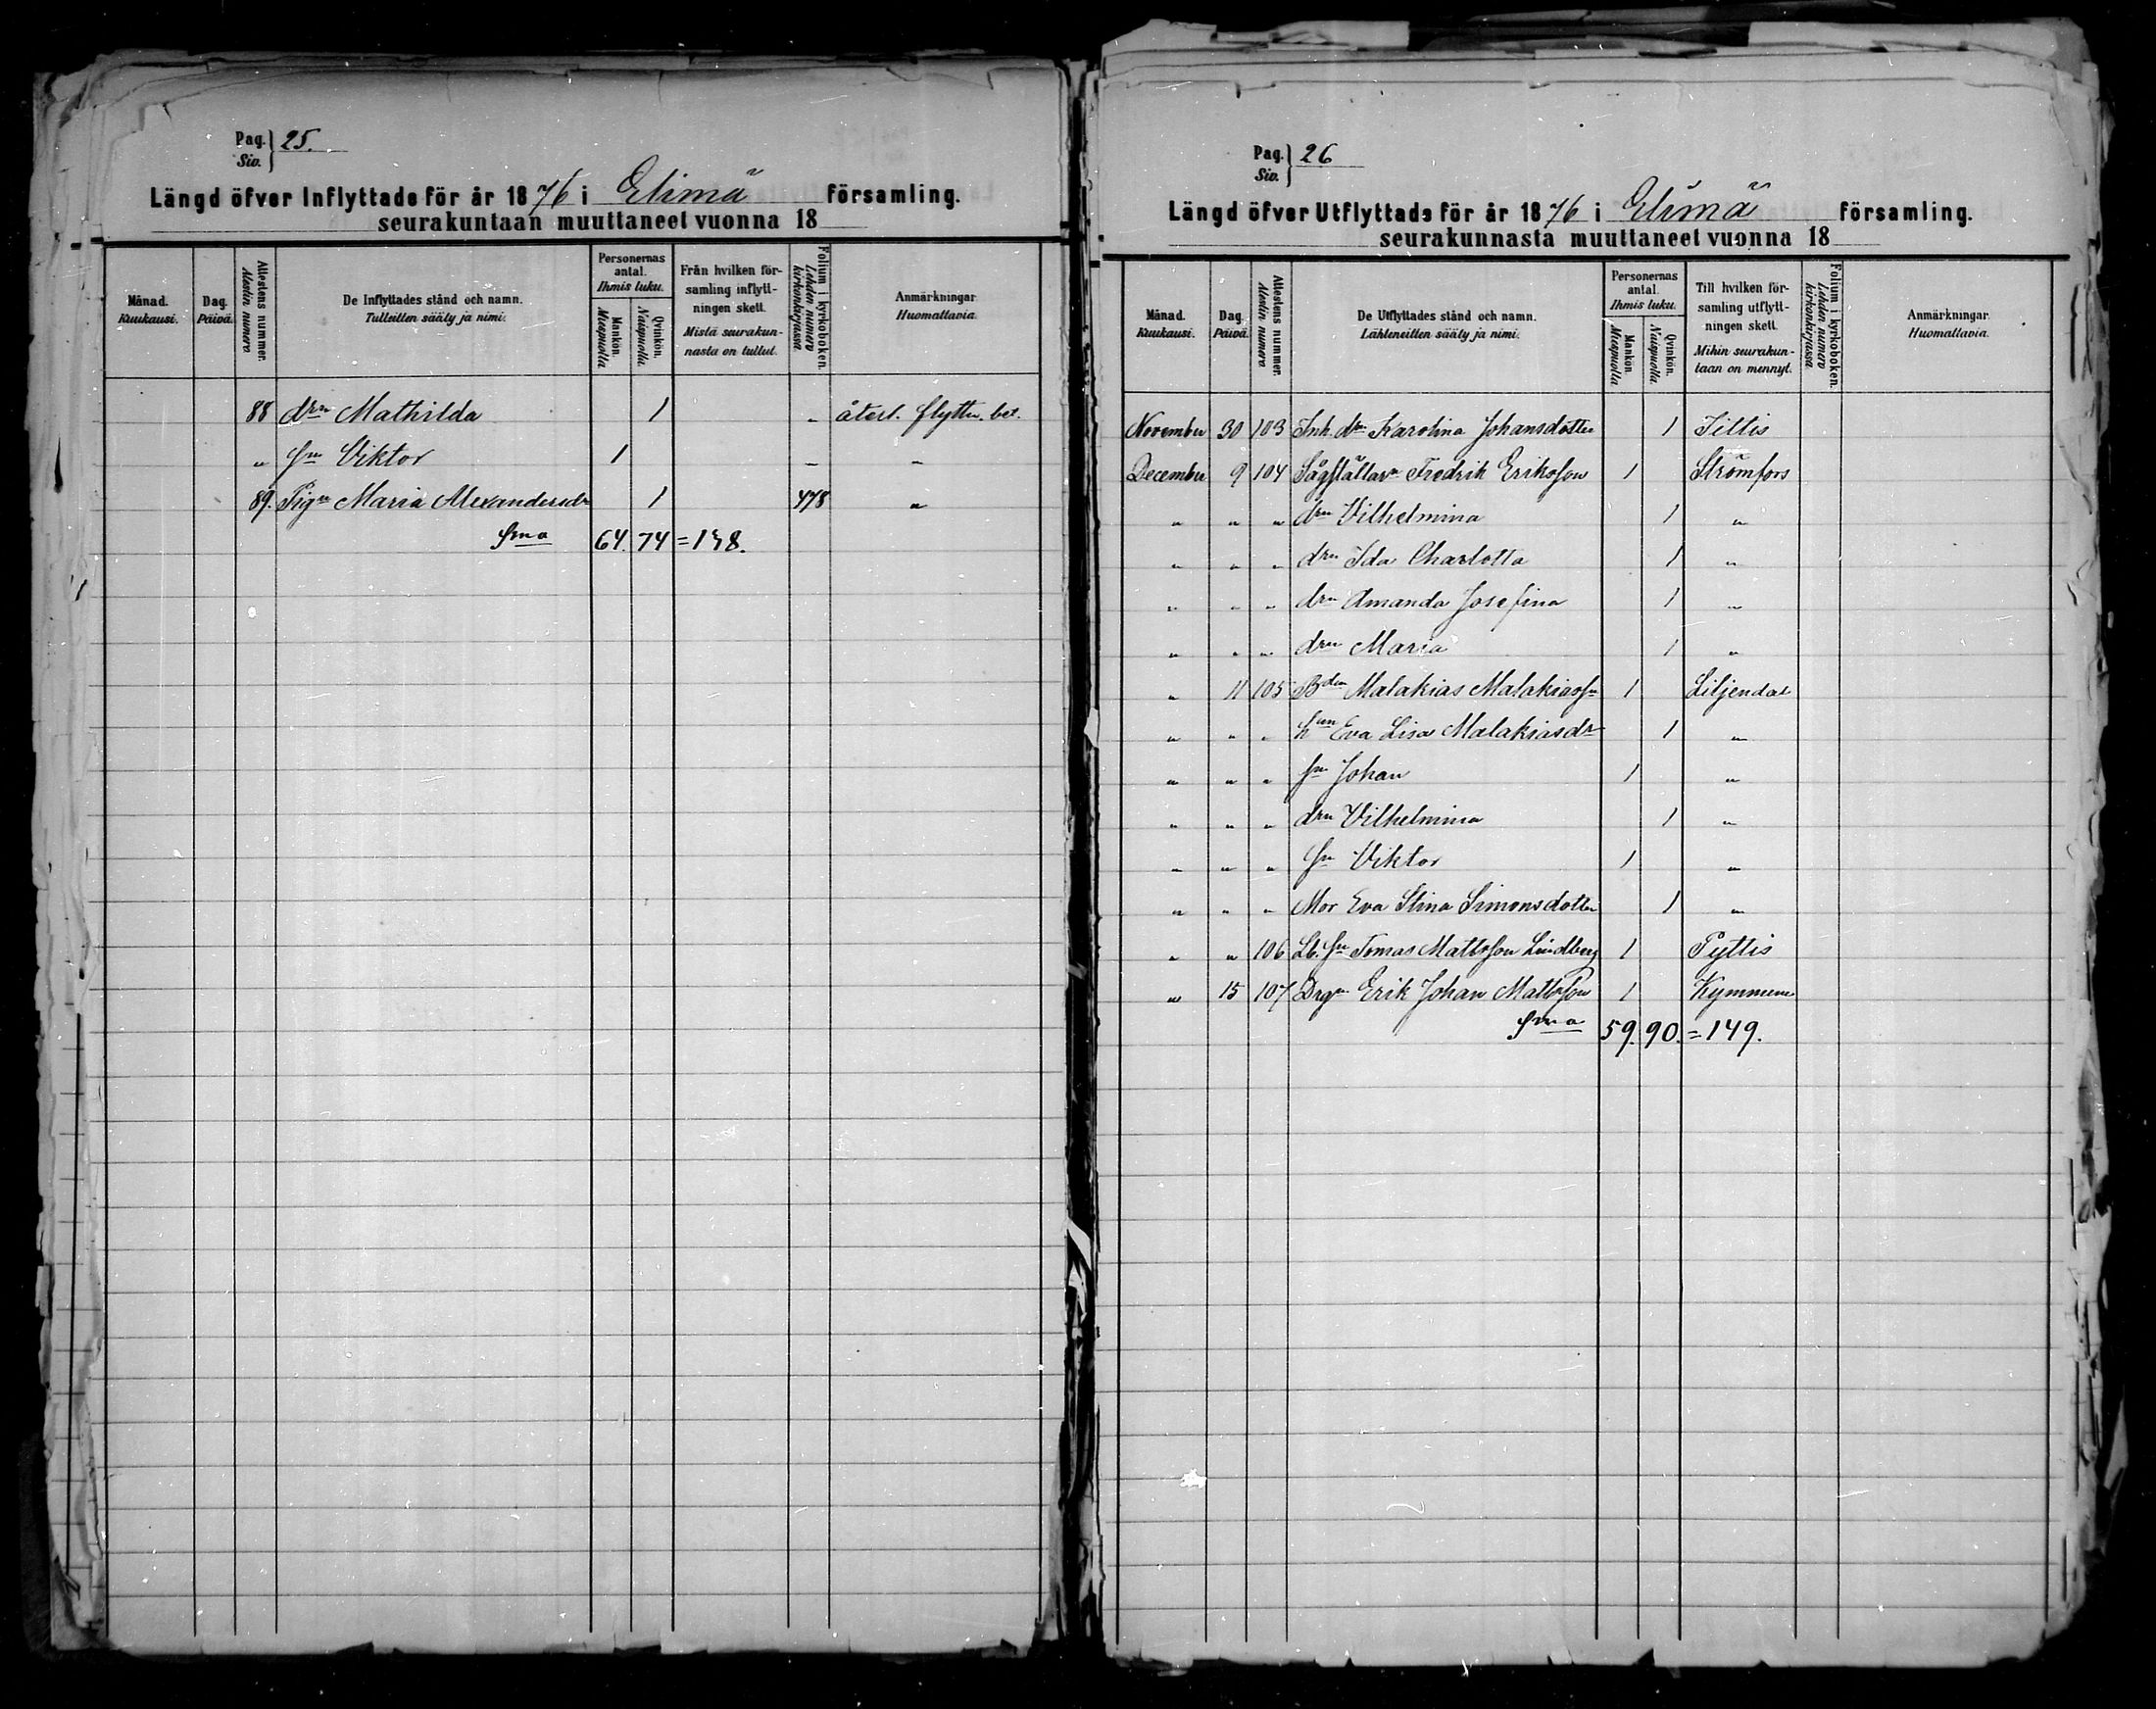 Pag. Siv. } 25.
Längd öfver Inflyttade för år 1876 i Elimä församling.
seurakuntaan muuttaneet vuonna 18
Månad. Kuukausi. | Dag. Päivä. | Attestens nummer. Atestin numero | De Inflyttades stånd och namn. Tulleitten sääty ja nimi. | Personernas antal. Ihmis luku. | Mankön. Miespuolia | Qvinkön. Naispuolia. | Från hvilken församling inflyttningen skett. Mistä seurakunnasta on tullut. | Folium i kyrkoboken. Lehden numero kirkonkirjassa | Anmärkningar. Huomattavia.
88 drn Mathilda 1 - återl. flyttn. bet.
" sn Viktor 1 - "
89. Pign Maria Alexandersdr 1 478 "
Sma 64. 74 = 138.
Pag. Siv. } 26
Längd öfver Utflyttade för år 1876 i Elimä församling.
seurakunnasta muuttaneet vuonna 18
Månad. Kuukausi. | Dag. Päivä. | Attestens nummer. Atestin numero | De Utflyttades stånd och namn. Lähteneitten sääty ja nimi. | Personernas antal. Ihmis luku. | Mankön. Miespuolia | Qvinkön. Naispuolia. | Till hvilken församling utflyttningen skett. Mihin seurakuntaan on mennyt. | Folium i kyrkoboken. Lehden numero kirkonkirjassa | Anmärkningar. Huomattavia.
November 30 103 Inh. drn Karolina Johansdotter 1 Iittis
December 9 104 Sågställarn Fredrik Eriksson 1 Strömfors
" " " drn Vilhelmina 1 "
" " " drn Ida Charlotta 1 "
" " " drn Amanda Josefina 1 "
" " " drn Maria 1 "
" 11 105 Bden Malakias Malakiassn 1 Liljendal
" " " hun Eva Lisa Malakiasdr 1 "
" " " sn Johan 1 "
" " " drn Vilhelmina 1 "
" " " sn Viktor 1 "
" " " Mor Eva Stina Simonsdotter 1 "
" " 106 Lb. sn Tomas Mattsson Lindberg 1 Pyttis
" 15 107 Drgn Erik Johan Mattsson 1 Kymmene
Sma 59. 90. = 149.